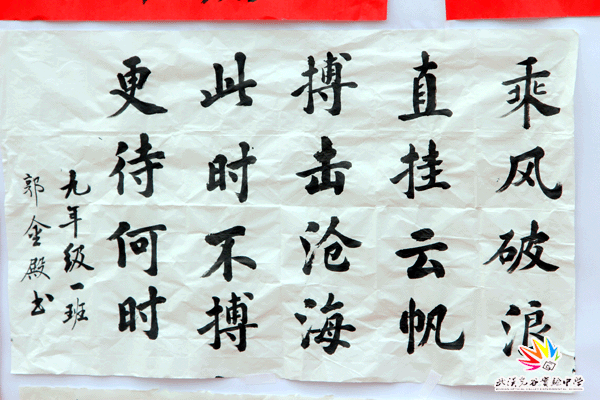 乘风破浪
直挂云帆
搏击沧海
此时不搏
更待何时
九年级一班
郭金殿书
武汉光谷实验中学